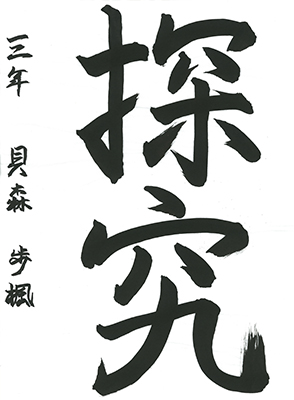 探究
三年 貝森 歩楓